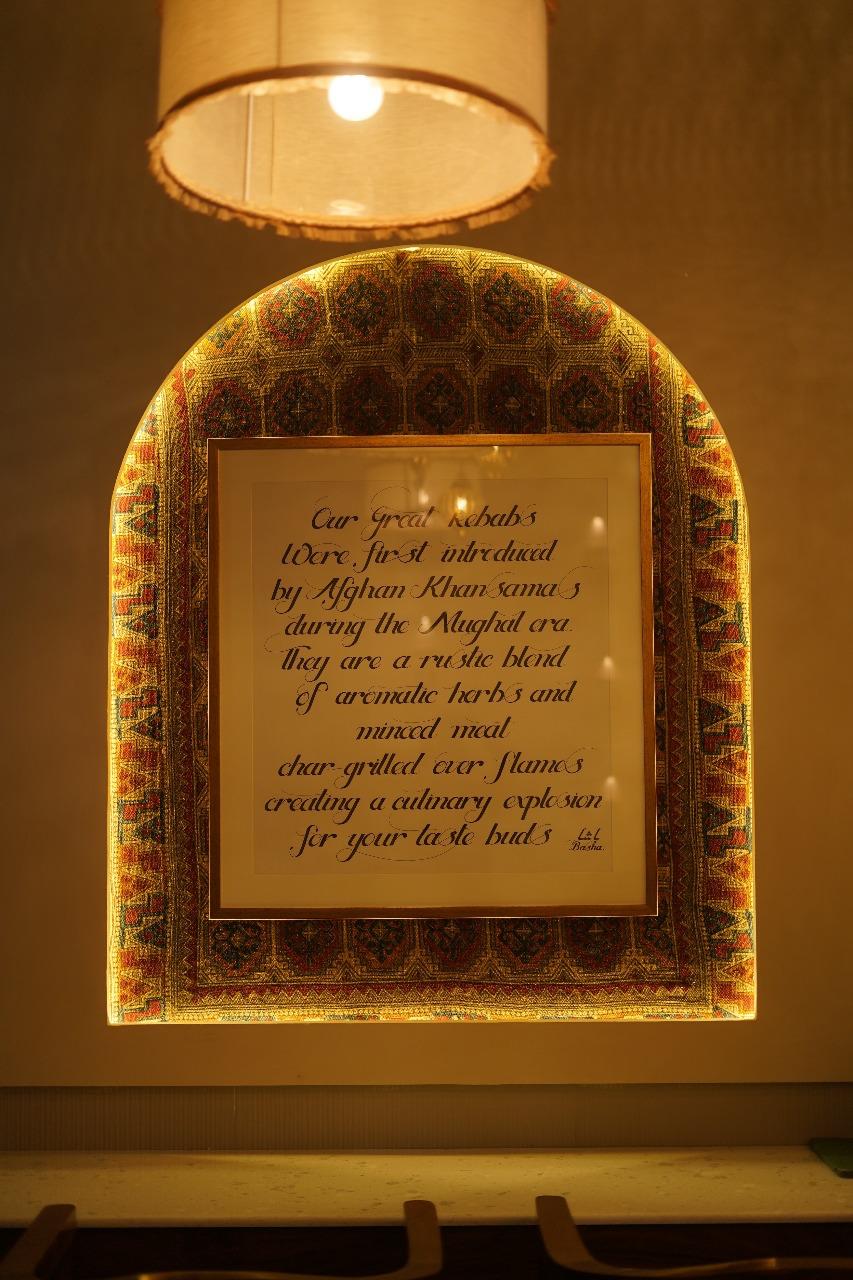 Our Great Kebabs
Were first introduced
by Afghan Khansamas
during the Mughal era.
They are a rustic blend
of aromatic herbs and
minced meat
char-grilled over flames
creating a culinary explosion
for your taste buds
Basha.